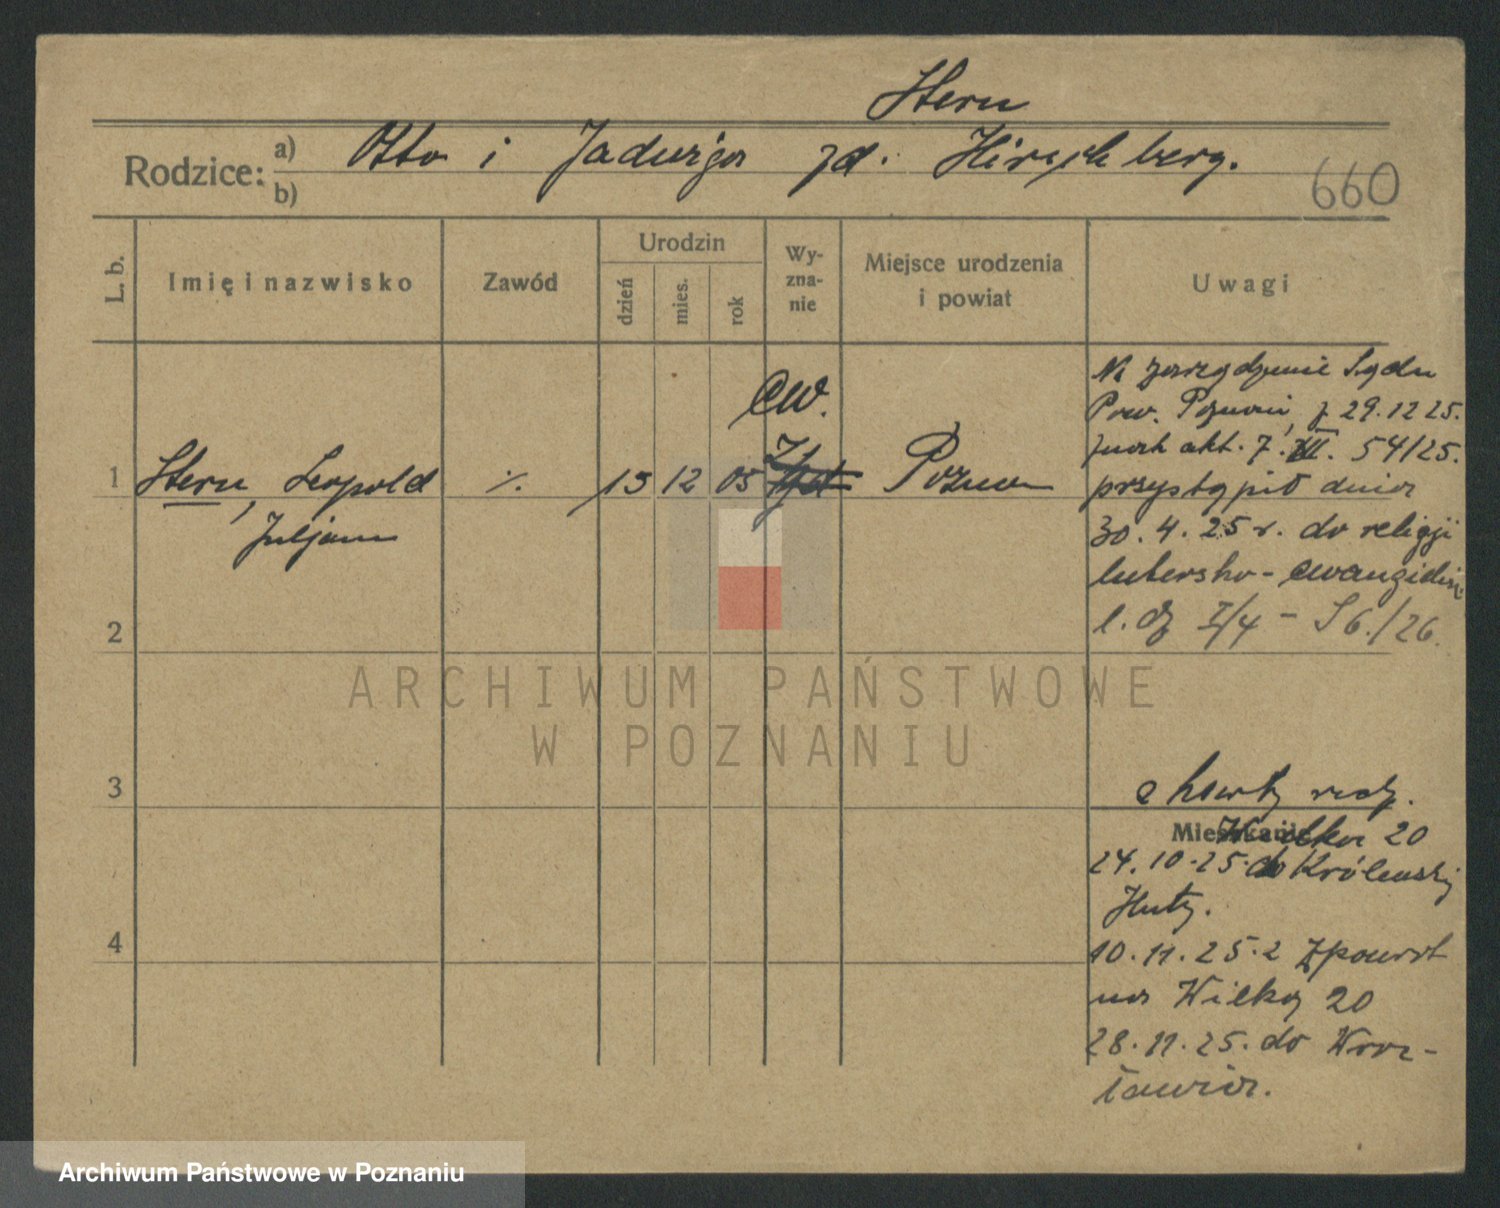 Stern
Rodzice: a) Otto i Jadwiga zd. Hirschberg.
b)
660
L. b.
Imię i nazwisko
Zawód
Urodzin
dzień
mies.
rok
Wy-
zna-
nie
Miejsce urodzenia
i powiat
Uwagi
1 Stern, Leopold ٪ 13 12 05 ew. Poznań
Juljan
Na zarządzenie Sądu
Pow. Poznań, z 29.12 25.
znak akt. 7. VII. 54/25.
przystąpił dnia
30.4.25 r. do religji
lutersko-ewangieli
l. dz I/4 - S 6./26.
2
3
z karty rodz.
Mieszkanie
Wielka 20
24.10.25 do Królewskiej
Huty.
4
10.11.25. z powrot
na Wielką 20
28.11.25. do Wroc-
ławia.
ARCHIWUM PAŃSTWOWE
W POZNANIU
Archiwum Państwowe w Poznaniu